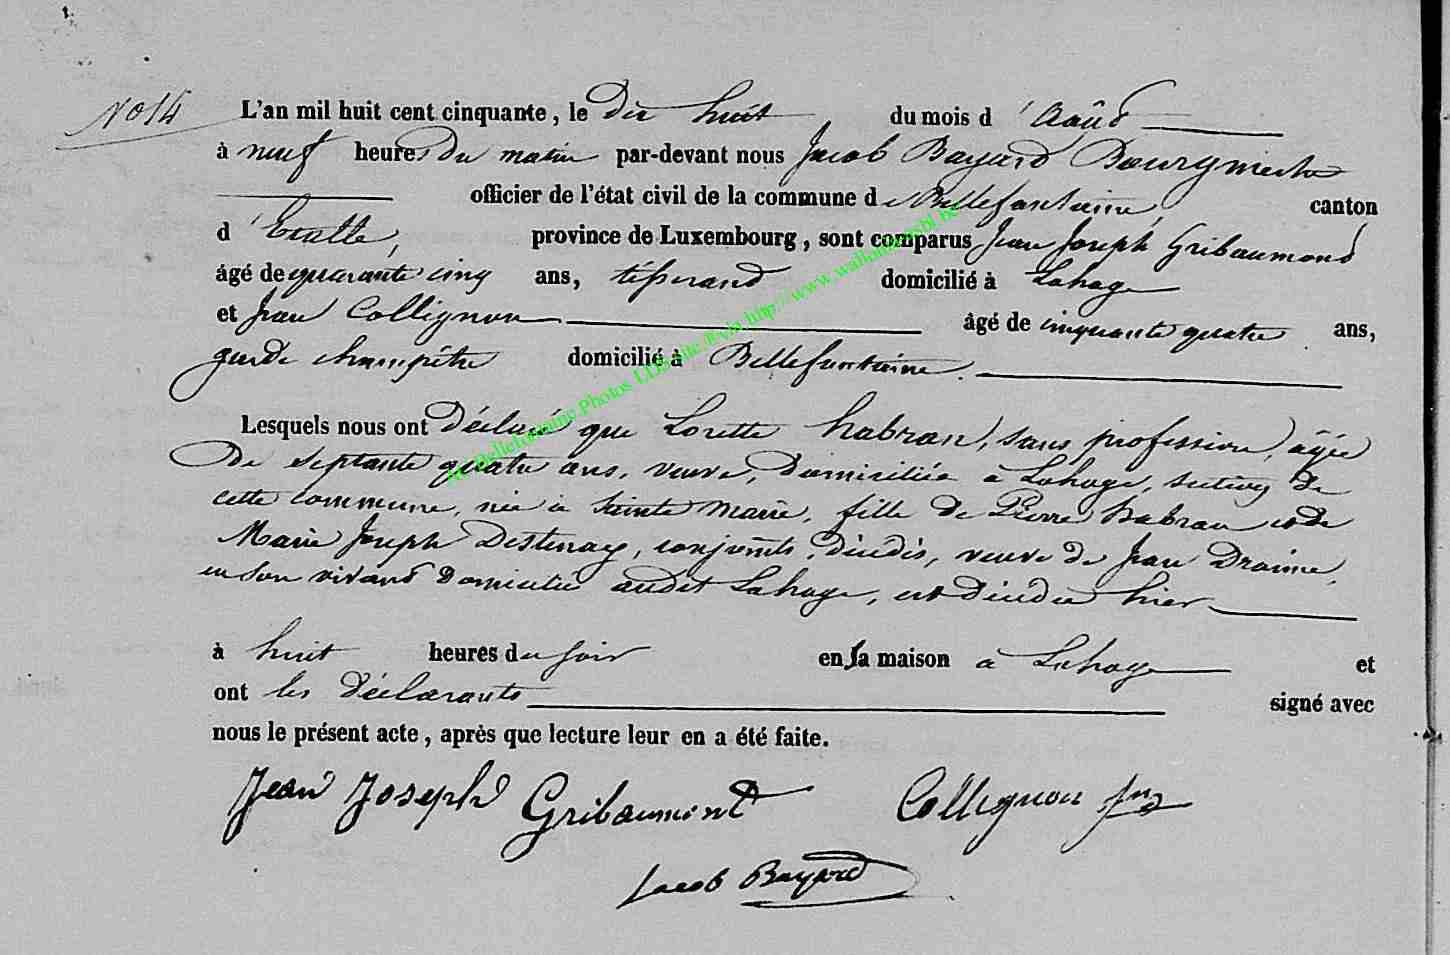 No 14
L'an mil huit cent cinquante, le dix huit du mois d'Août
à neuf heures du matin par-devant nous Jacob Bayard Bourgmestre
officier de l'état civil de la commune de Bellefontaine, canton
d'Etalle, province de Luxembourg, sont comparus Jean Joseph Gribaumont
âgé de quarante cinq ans, tisserand domicilié à Lahage
et Jean Collignon âgé de cinquante quatre ans,
garde champêtre domicilié à Bellefontaine.
Lesquels nous ont déclaré que Lorette habran, sans profession, âgée
de septante quatre ans, veuve, domiciliée à Lahage, section de
cette commune, née à Sainte Marie, fille de Pierre habran et de
Marie Joseph Destenay, conjoints, décédés, veuve de Jean Draime,
en son vivant domicilié audit Lahage, est décédée hier
à huit heures du soir en sa maison à Lahage et
ont les déclarants signé avec
nous le présent acte, après que lecture leur en a été faite.
Jean Joseph Gribaumont Collignon
Jacob Bayard